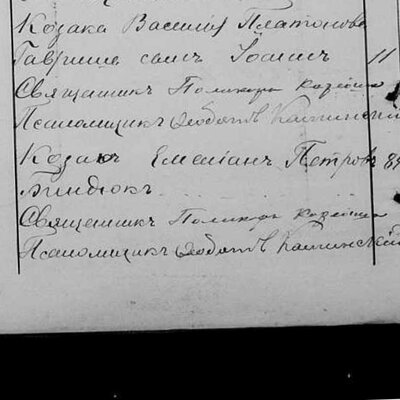 Козака Василія Платонова
Гавриша сынъ Іоаннъ 11
Священникъ Поликарпъ
Псаломщикъ Ѳеодотъ Каминскій
Козакъ Емеліанъ Петровъ 84
Бондюкъ
Священникъ Поликарпъ
Псаломщикъ Ѳеодотъ Каминскій